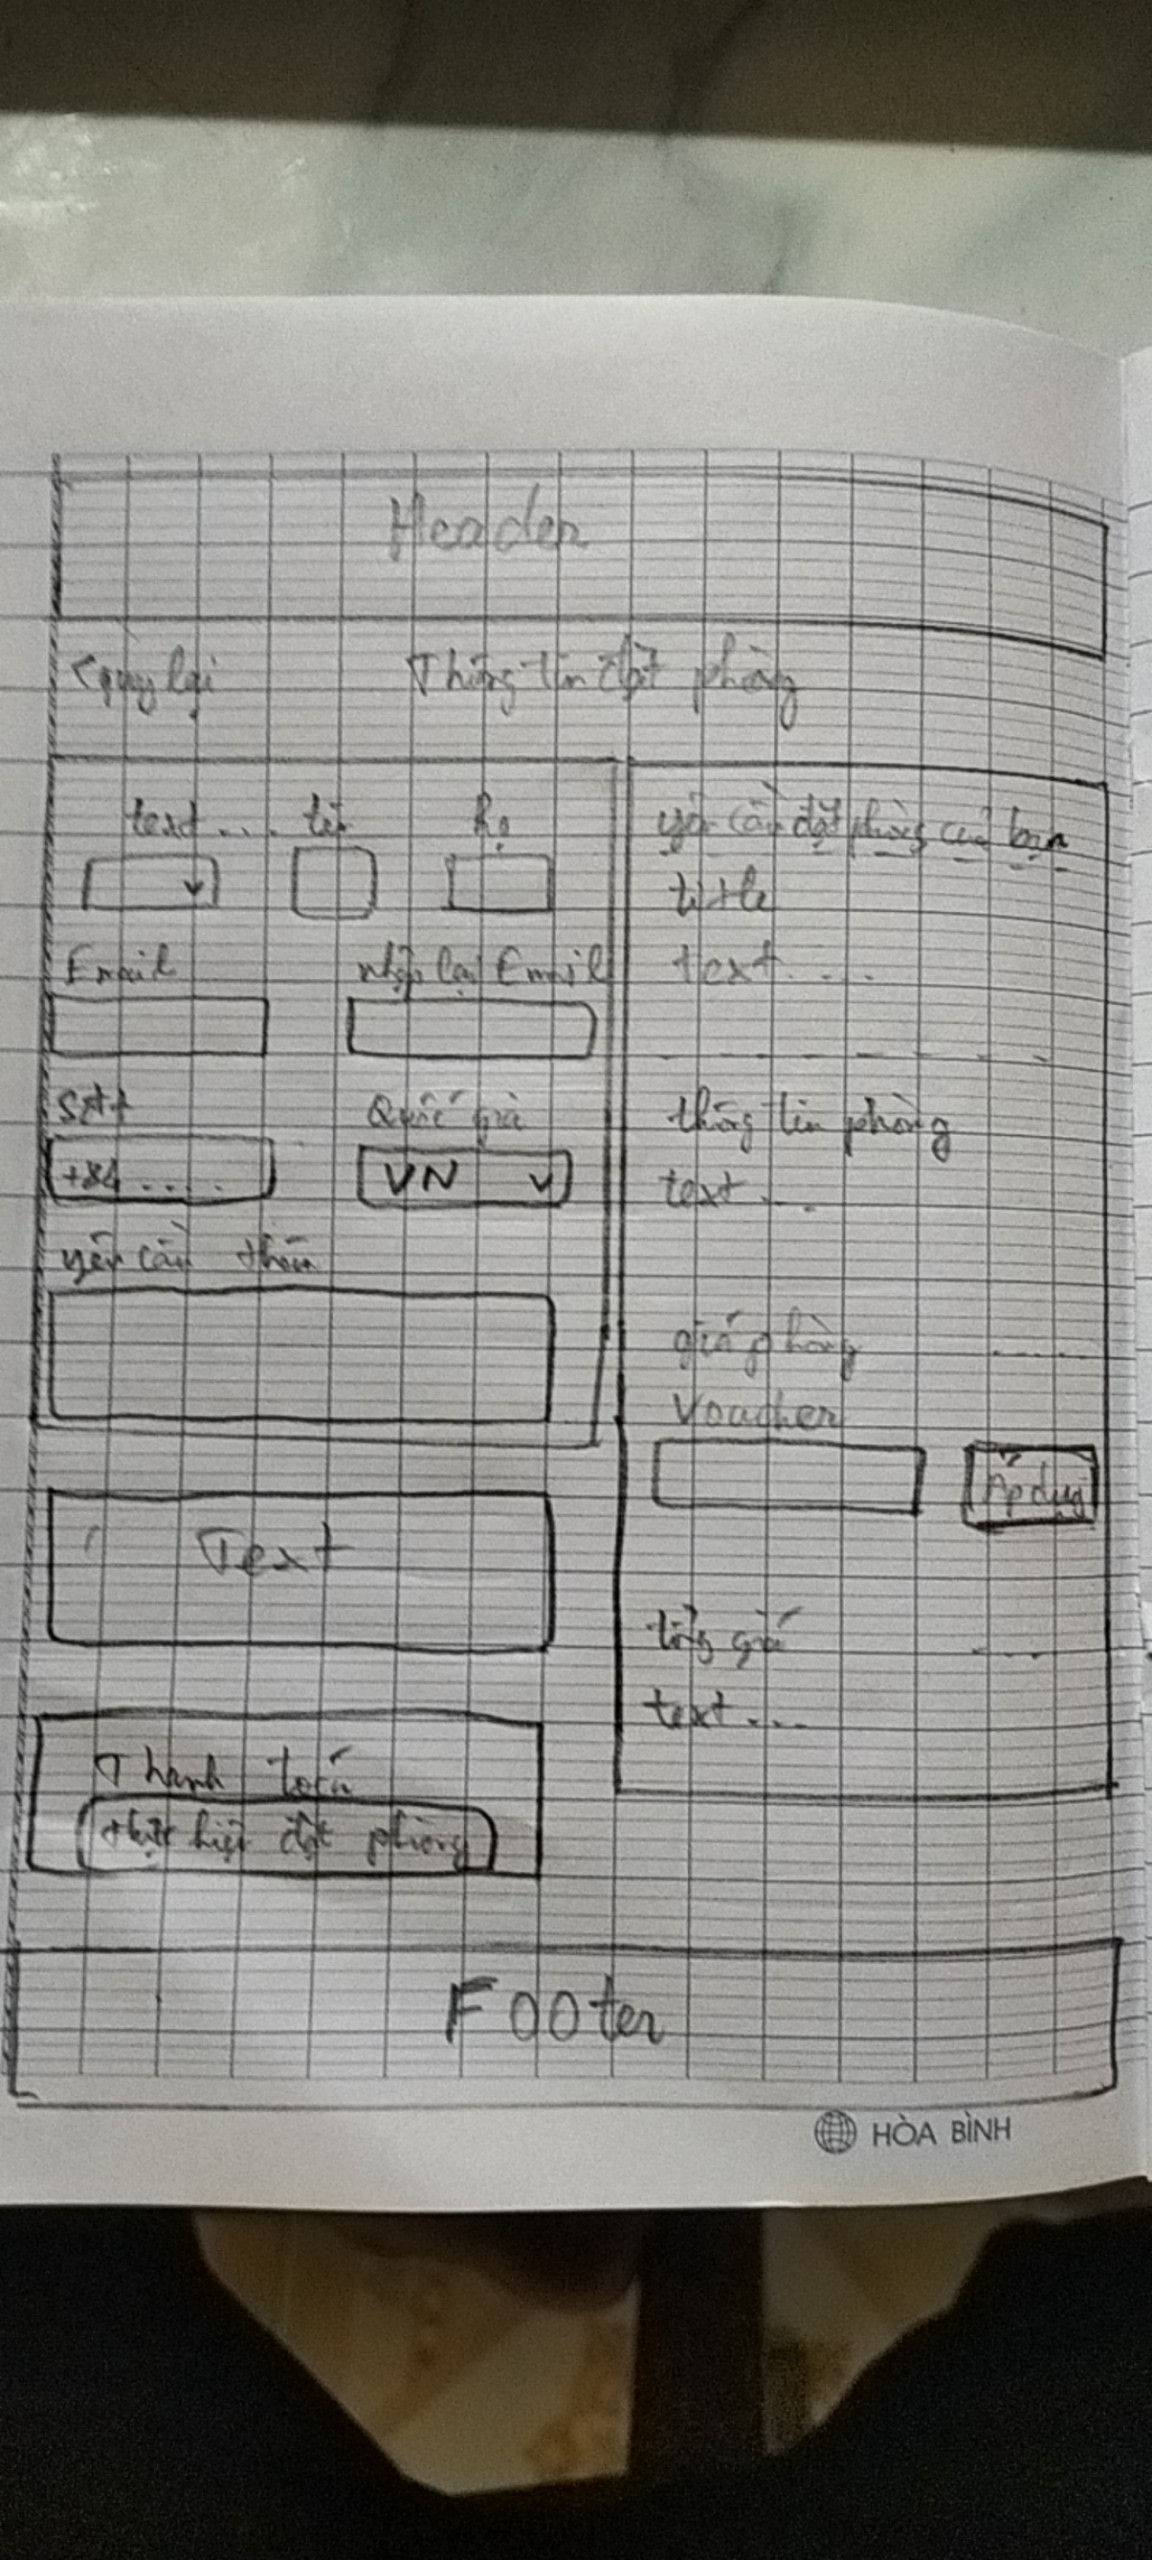 Header
< quay lại
Thông tin đặt phòng
text.... tên Họ
Email nhập lại Email
SĐT Quốc gia
+84.... VN
yêu cầu thêm
Text
Thanh toán
thực hiện đặt phòng
yêu cầu đặt phòng của bạn
title
text....
thông tin phòng
text...
giá phòng .....
Voucher
Áp dụng
tổng giá ....
text...
Footer
HÒA BÌNH